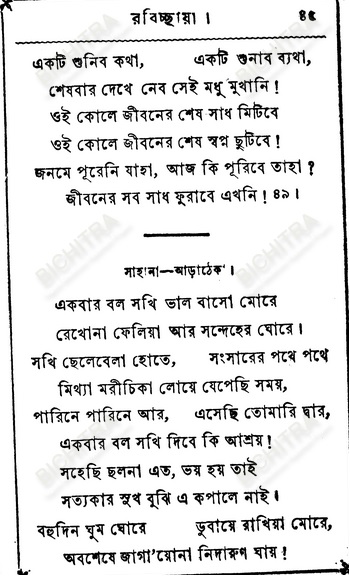 রবিচ্ছায়া। ৪৫
একটি শুনিব কথা, একটি শুনাব ব্যথা,
শেষবার দেখে নেব সেই মধু মুখানি!
ওই কোলে জীবনের শেষ সাধ মিটিবে
ওই কোলে জীবনের শেষ স্বপ্ন ছুটিবে!
জনমে পূরেনি যাহা, আজ কি পূরিবে তাহা?
জীবনের সব সাধ ফুরাবে এখনি! ৪৯।
সাহানা—আড়াঠেকা।
একবার বল সখি ভাল বাসো মোরে
রেখোনা ফেলিয়া আর সন্দেহের ঘোরে।
সখি ছেলেবেলা হোতে, সংসারের পথে পথে
মিথ্যা মরীচিকা লোয়ে যেপেছি সময়,
পারিনে পারিনে আর, এসেছি তোমারি দ্বার,
একবার বল সখি দিবে কি আশ্রয়!
সহেছি ছলনা এত, ভয় হয় তাই
সত্যকার সুখ বুঝি এ কপালে নাই।
বহুদিন ঘুম ঘোরে ডুবায়ে রাখিয়া মোরে,
অবশেষে জাগা'য়োনা নিদারুণ ঘায়!
BICHITRA